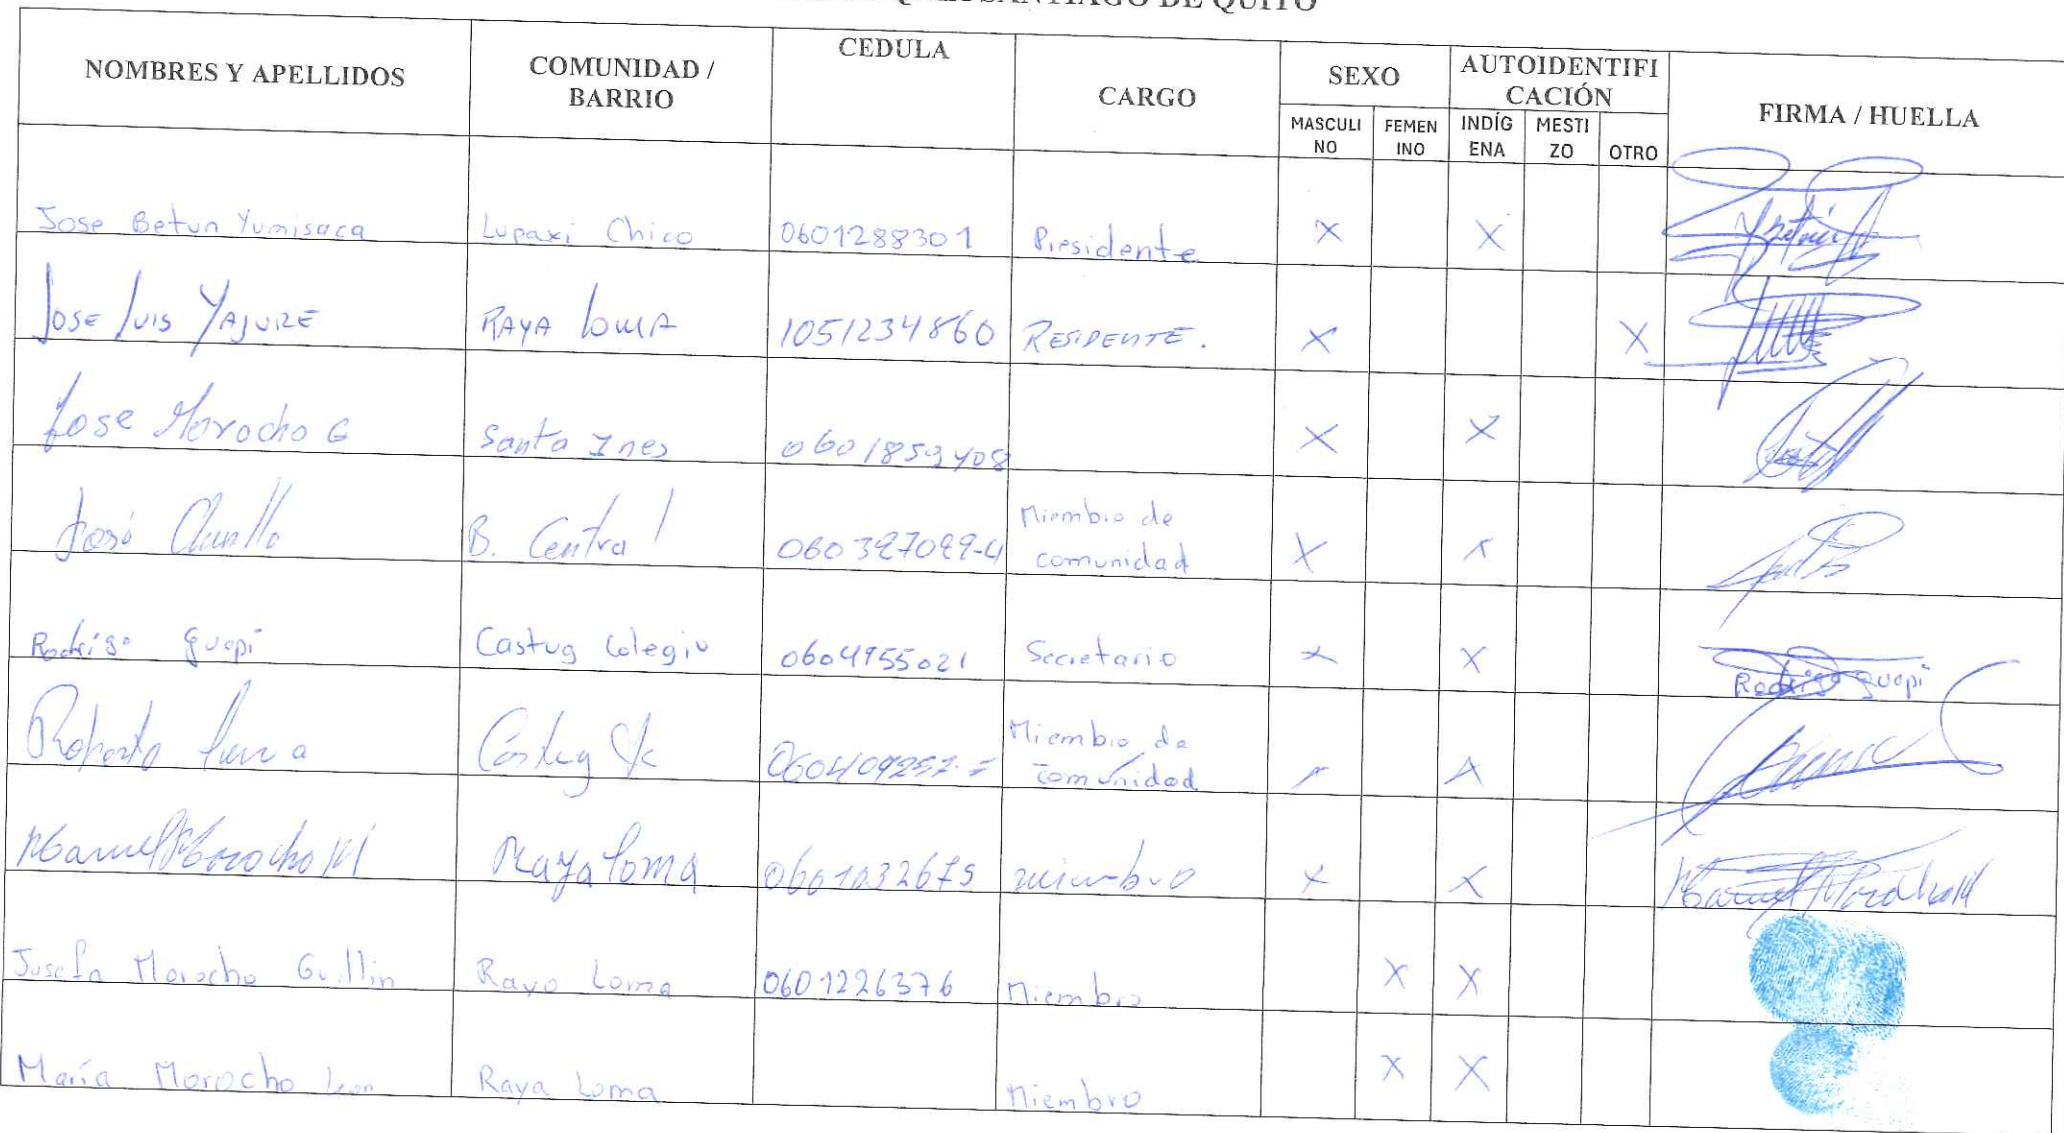 SANTIAGO DE QUITO
NOMBRES Y APELLIDOS
COMUNIDAD /
BARRIO
CEDULA
CARGO
SEXO
MASCULI
NO
FEMEN
INO
AUTOIDENTIFI
CACIÓN
INDÍG
ENA
MESTI
ZO
OTRO
FIRMA / HUELLA
Jose Betun Yumisaca Lupaxi Chico 0601288301 Presidente X X
JOSE LUIS YAJURE RAYA LOMA 1051234860 RESIDENTE. X X
Jose Morocho G Santa Ines 0601853408 X X
José B. Central Miembro de
comunidad X X
Rodrigo guapi Castug Colegio 0604955021 Secretario X X Rodrigo guapi
Roberto Miembro de
comunidad X X
Manuel Morocho M Raya loma 0601032675 miembro X X Manuel Morocho M
Josefa Morocho Guillin Raya Loma 0601226376 Miembro X X
María Morocho Leon Raya Loma Miembro X X